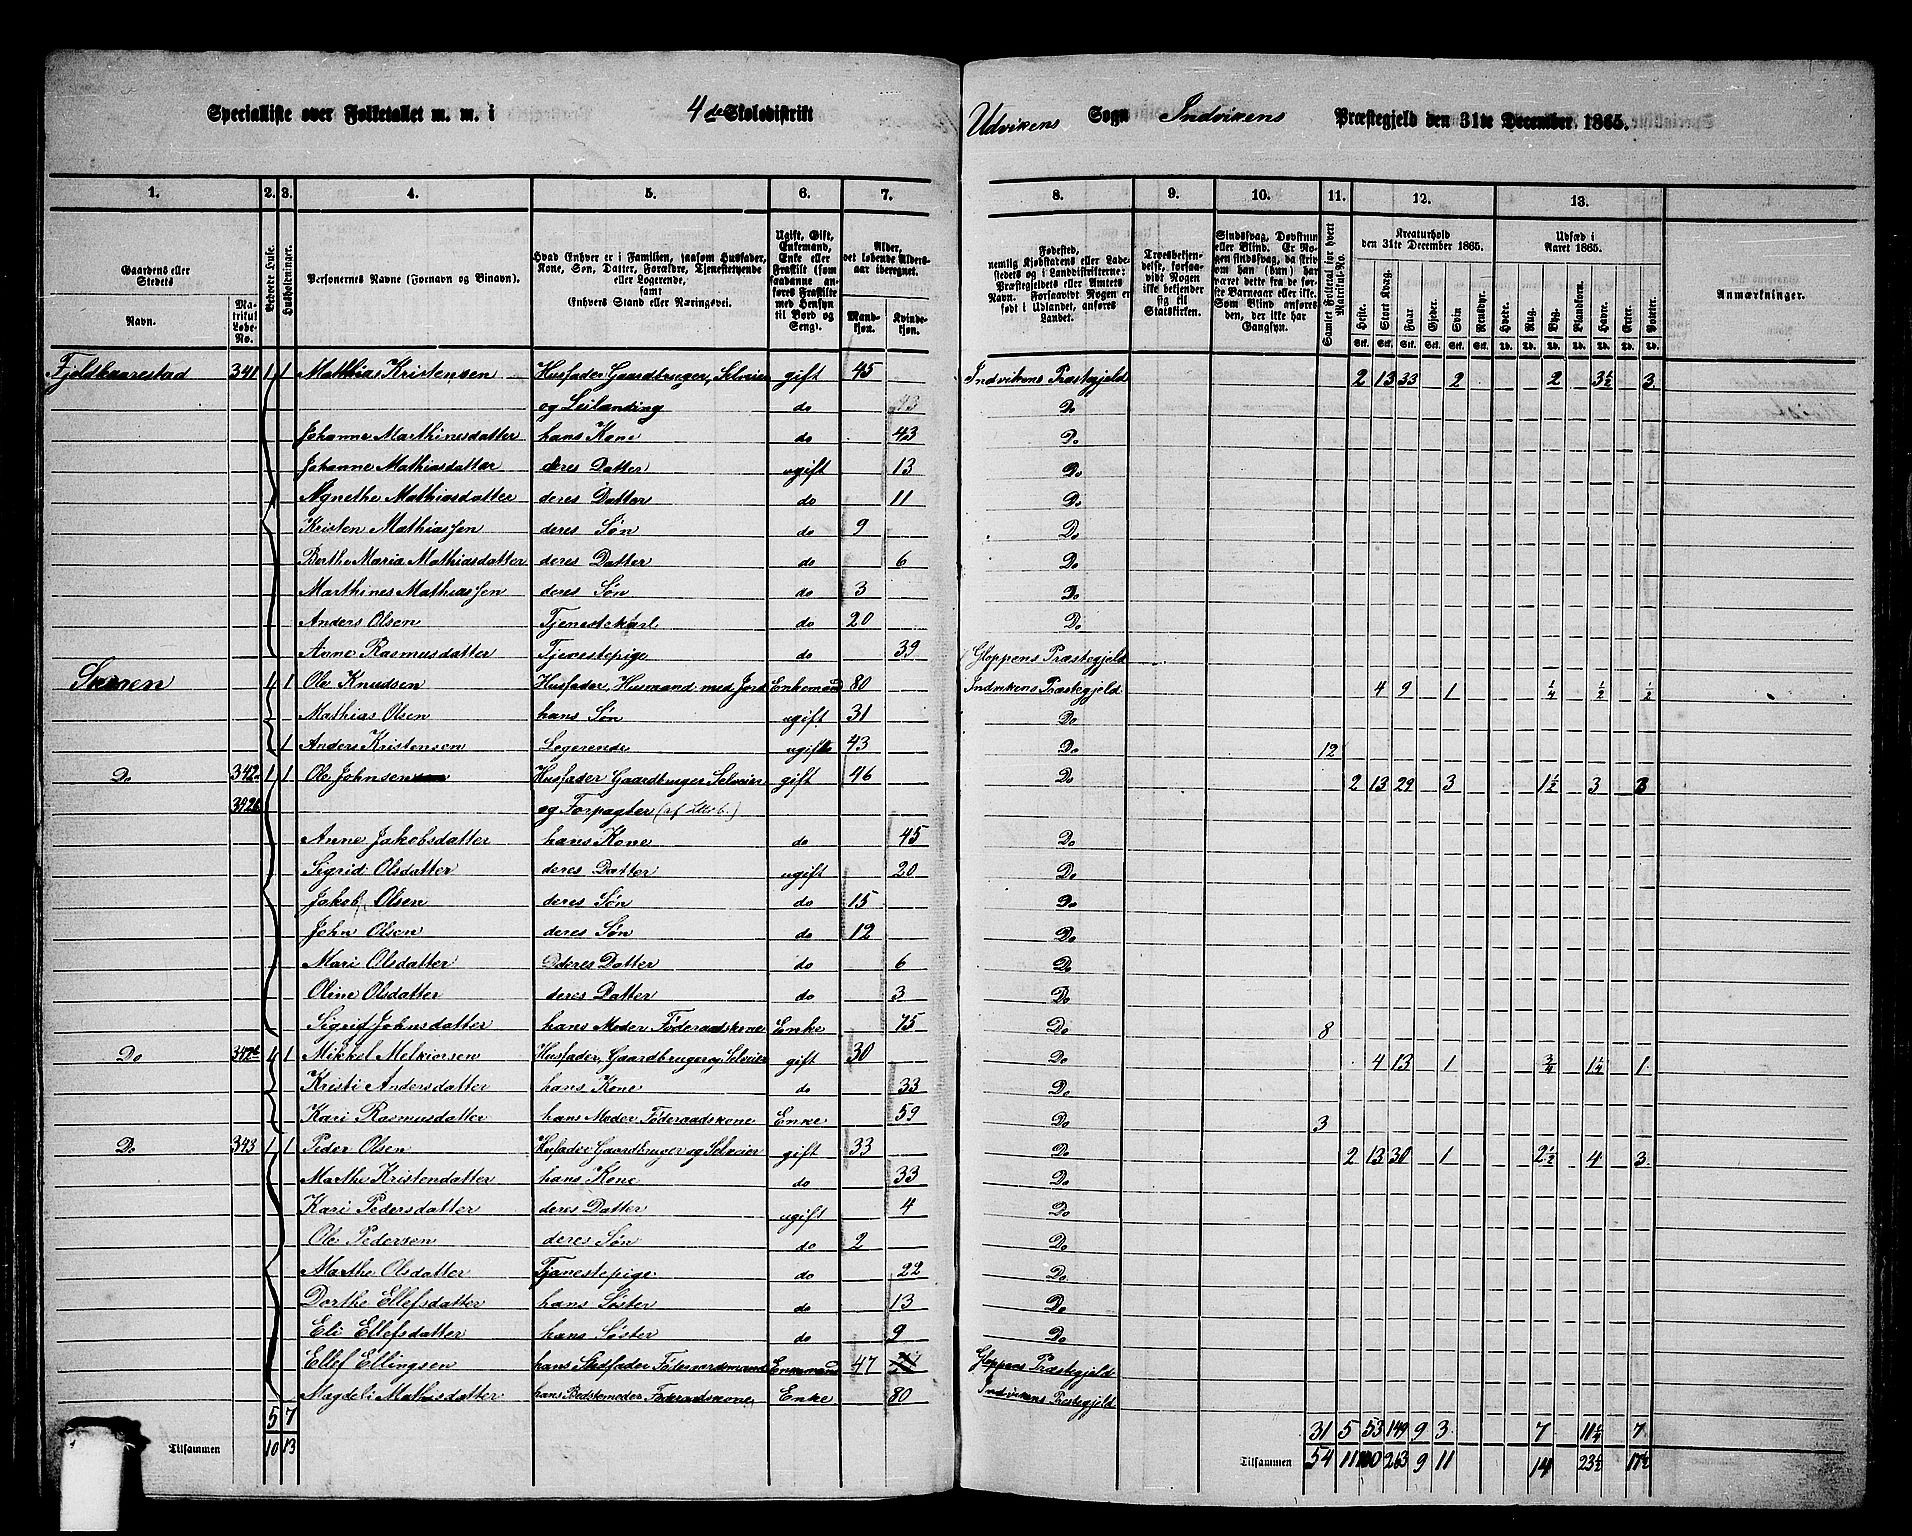 Specialliste over Folketallet m. m. i 4de Skoledistrikt Udvikens Sogn Indvikens Præstegjeld den 31te December 1865.
1. 2. 3. 4. 5. 6. 7. 8. 9. 10. 11. 12. 13.
Gaardens eller Stedets Navn. Matrikul Løbe-No. Beboede Huse. Husholdninger. Personernes Navne (Fornavn og Tilnavn). Hvad Enhver er i Familien, saasom Husfader, Kone, Søn, Datter, Forældre, Tjenestetyende eller Logerende, samt Enhvers Stand eller Næringsvei. Ugift, Gift, Enkemand, Enke eller Fraskilt (som saadanne anføres Fraskilte med Hensyn til Bord og Seng). Alder, det løbende Aldersaar iberegnet. Mandkjøn. Kvindekjøn.
Fødested, nemlig Kjøbstadens eller Ladestedets og i Landdistrikterne: Præstegjeldets eller Amtets Navn. Forsaavidt Nogen er født i Udlandet, anføres Landet. Troesbekjendelse, forsaavidt Nogen ikke bekjender sig til Statskirken. Sindssvag, Døvstum eller Blind. Samlet Folketal for hvert Matrikul-No. Kreaturhold den 31te December 1865. Udsæd i Aaret 1865. Anmærkninger.
Heste. Stort Kvæg. Faar. Gjeder. Svin. Rensdyr. Hvede. Rug. Byg. Blandkorn. Havre. Erter. Poteter.
Fjeldkaarestad 341 1 1 Matthias Kristensen Husfader Gaardbruger, Selveier gift 45 Indvikens Præstegjeld 2 13 33 2 2 3½ 3
og Leilænding do 43 Do
Johanne Marthinesdatter hans Kone do 43 Do
Johanne Mathiasdatter deres Datter ugift 13 Do
Agnethe Mathiasdatter deres Datter do 11 Do
Kristen Mathiassen deres Søn do 9 Do
Berthe Maria Mathiasdatter deres Datter do 6 Do
Marthines Mathiassen deres Søn do 3 Do
Anders Olsen Tjenestekarl do 20 Do
Anne Rasmusdatter Tjenestepige do 39 Gloppens Præstegjeld
1 1 Ole Knudsen Husfader, Husmand med Jord Enkemand 80 Indvikens Præstegjeld 4 9 1 ¼ ½ ½
Mathias Olsen hans Søn ugift 31 Do
1 Anders Kristensen Logerende ugift 43 Do 12
Do 342a 1 1 Ole Johnsen Husfader Gaardbruger Selveier gift 46 Do 2 13 29 3 1½ 3 3
og Forpagter (af Litr b.)
Anne Jakobsdatter hans Kone do 45 Do
Sigrid Olsdatter deres Datter ugift 20 Do
Jakob Olsen deres Søn do 15 Do
John Olsen deres Søn do 12 Do
Mari Olsdatter deres Datter do 6 Do
Oline Olsdatter deres Datter do 3 Do
Sigrid Johnsdatter hans Moder Føderaadskone Enke 75 Do 8
Do 1 1 Mikkel Melkiorsen Husfader, Gaardbruger og Selveier gift 30 Do 4 13 1 ¾ 1¼ 1
Kristi Andersdatter hans Kone do 33 Do
Kari Rasmusdatter hans Moder Føderaadskone Enke 59 Do 3
Do 343 1 1 Peder Olsen Husfader Gaardbruger og Selveier gift 33 Do 2 13 30 1 2½ 4 3
Marthe Kristendatter hans Kone do 33 Do
Kari Pedersdatter deres Datter ugift 4 Do
Ole Pedersen deres Søn do 2 Do
Marthe Olsdatter Tjenestepige do 22 Do
Dorthe Ellefsdatter hans Søster do 13 Do
Eli Ellefsdatter hans Søster do 9 Do
Ellef Ellingsen hans Stedfader Føderaadsmand Enkemand 47 Gloppens Præstegjeld
Magdeli Mathisdatter hans Bedstemoder Føderaadskone Enke 80 Indvikens Præstegjeld
5 7 31 5 53 149 9 3 7 11¼ 7
Tilsammen 10 13 Tilsammen 54 11 100 263 9 11 14 23½ 17½